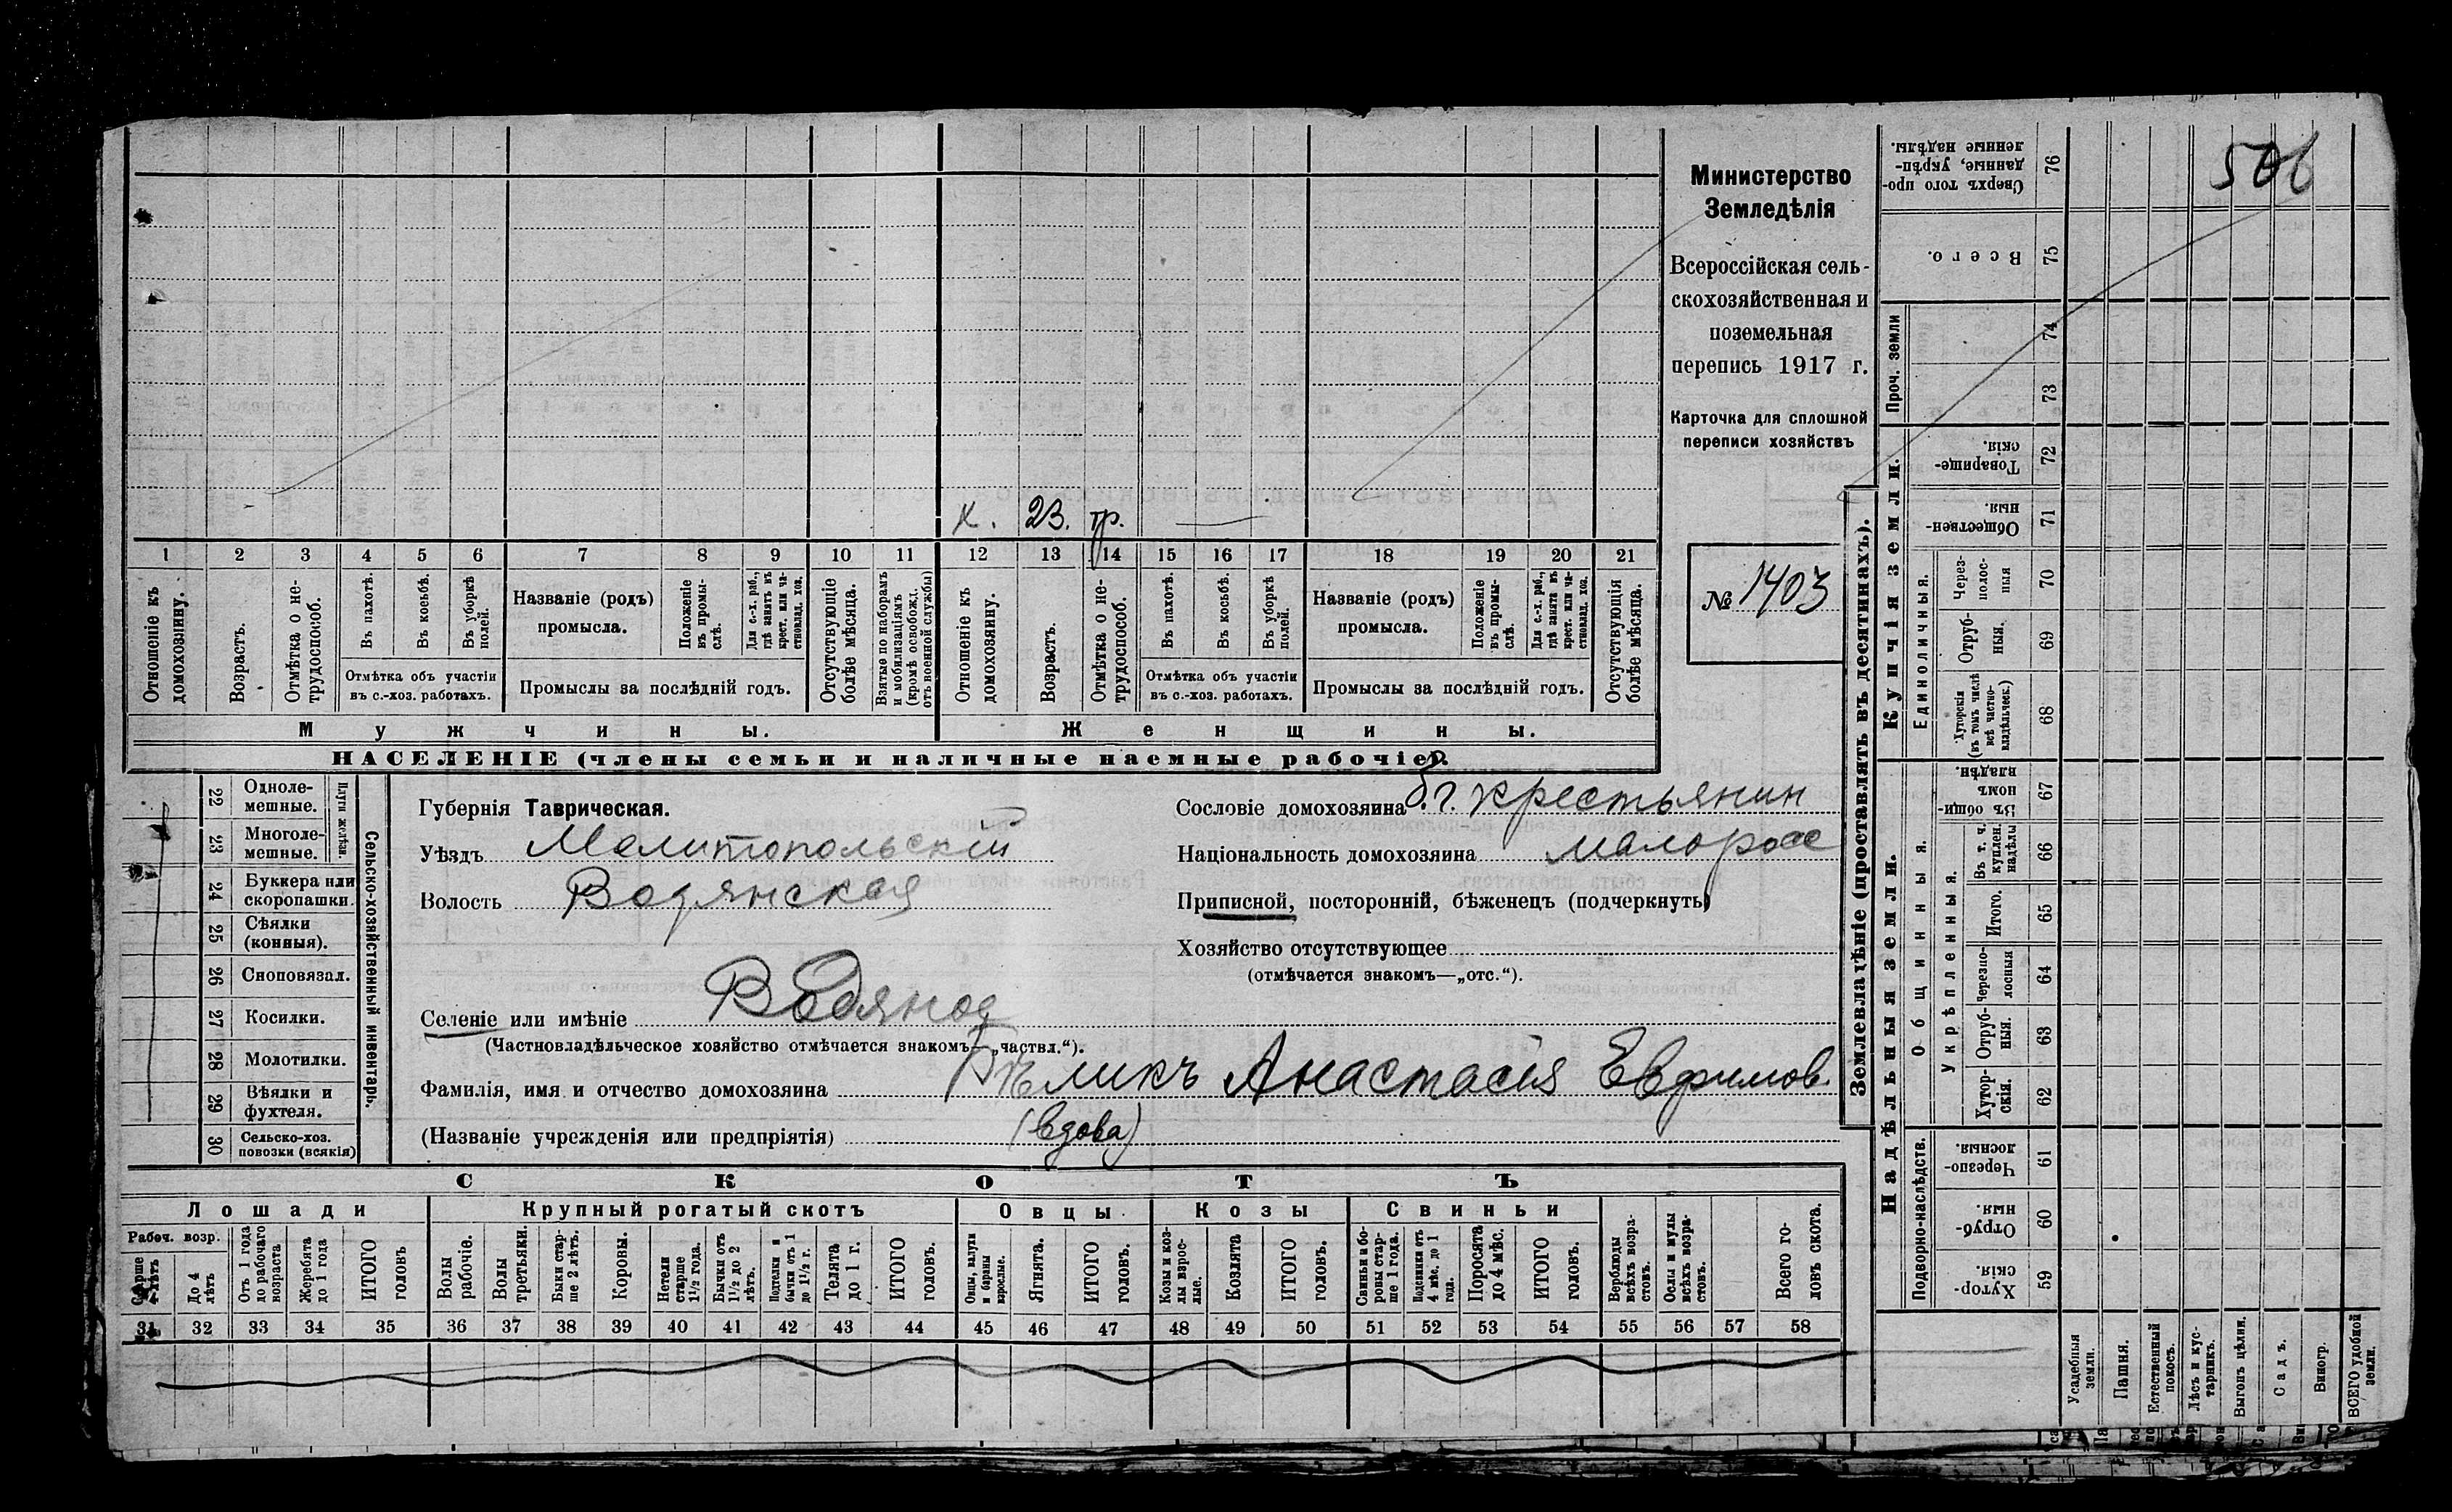 506
Министерство
Земледѣлія
Всероссійская сель-
скохозяйственная и
поземельная
перепись 1917 г.
Карточка для сплошной
переписи хозяйствъ
№ 1403
х. 23. тр.
1 2 3 4 5 6 7 8 9 10 11 12 13 14 15 16 17 18 19 20 21
Отношеніе къ домохозяину.
Возрастъ.
Отмѣтка о не-трудоспособ.
Въ пахотѣ.
Въ косьбѣ.
Въ уборкѣ полей.
Отмѣтка объ участіи
въ с.-хоз. работахъ.
Названіе (родъ)
промысла.
Положеніе въ промы-слѣ.
Для с.-х. раб., гдѣ занятъ въ крест. или ча-стновлад. хоз.
Промыслы за послѣдній годъ.
Отсутствующіе болѣе мѣсяца.
Взятые по наборамъ и мобилизаціямъ (кромѣ освобожд. отъ военной службы)
Отношеніе къ домохозяину.
Возрастъ.
Отмѣтка о не-трудоспособ.
Въ пахотѣ.
Въ косьбѣ.
Въ уборкѣ полей.
Отмѣтка объ участіи
въ с.-хоз. работахъ.
Названіе (родъ)
промысла.
Положеніе въ промы-слѣ.
Для с.-х. раб., гдѣ занята въ крест. или ча-стновлад. хоз.
Промыслы за послѣдній годъ.
Отсутствующія болѣе мѣсяца.
Мужчины. Женщины.
НАСЕЛЕНІЕ (члены семьи и наличные наемные рабочіе).
22 Одноле-мешные.
23 Многоле-мешные.
Плуги желѣзн.
24 Буккера или скоропашки.
25 Сѣялки (конныя).
26 Сноповязал.
27 Косилки.
28 Молотилки.
29 Вѣялки и фухтеля.
30 Сельско-хоз. повозки (всякія)
Сельско-хозяйственный инвентарь.
Губернія Таврическая.
Уѣздъ Мелитопольскій
Волость Водянская
Селеніе или имѣніе Водяное
(Частновладѣльческое хозяйство отмѣчается знакомъ—„частвл.“).
Фамилія, имя и отчество домохозяина Бѣликъ Анастасія Евфимов.
(Названіе учрежденія или предпріятія) (вдова)
Сословіе домохозяина б. г. крестьянин
Національность домохозяина малоросс
Приписной, посторонній, бѣженецъ (подчеркнуть)
Хозяйство отсутствующее
(отмѣчается знакомъ—„отс.“).
СКОТЪ
Лошади Крупный рогатый скотъ Овцы Козы Свиньи
Рабоч. возр.
Старше 4 лѣтъ
До 4 лѣтъ
Отъ 1 года до рабочаго возраста
Жеребята до 1 года
ИТОГО головъ
Волы рабочіе.
Волы третьяки.
Быки стар-ше 2 лѣтъ.
Коровы.
Нетели старше 1½ года.
Бычки отъ 1½ до 2 лѣтъ.
Подтелки и бычки отъ 1 до 1½ г.
Телята до 1 г.
ИТОГО головъ.
Овцы, валухи и бараны взрослые.
Ягнята.
ИТОГО головъ.
Козы и коз-лы взрос-лые.
Козлята
ИТОГО головъ.
Свиньи и бо-ровы стар-ше 1 года.
Подсвинки отъ 4 мѣс. до 1 года.
Поросята до 4 мѣс.
ИТОГО головъ.
Верблюды всѣхъ возра-стовъ.
Ослы и мулы всѣхъ возра-стовъ.
Всего го-ловъ скота.
31 32 33 34 35 36 37 38 39 40 41 42 43 44 45 46 47 48 49 50 51 52 53 54 55 56 57 58
Землевладѣніе (проставлять въ десятинахъ).
Купчія земли. Проч. земли
Надѣльныя земли.
Сверхъ того про-данные, укрѣп-ленные надѣлы. 76
Всего. 75
74
73
Товарище-скія 72
Обществен-ныя 71
Единоличныя.
Через-полос-ныя 70
Отруб-ныя. 69
Хуторскія (въ томъ числѣ всѣ частно-владѣльческ.) 68
Общинныя.
Въ общин-номъ владѣн. 67
Укрѣпленныя.
Въ т. ч. куплен. надѣлы 66
Итого. 65
Черезпо-лосныя 64
Отруб-ныя. 63
Хутор-скія. 62
Подворно-наслѣдств.
Черезпо-лосныя. 61
Отруб-ныя. 60
Хутор-скія. 59
Усадебныя земли.
Пашня.
Естественный покосъ.
Лѣсъ и кус-тарникъ.
Выгонъ цѣлин.
Садъ.
Виногр.
ВСЕГО удобной земли.